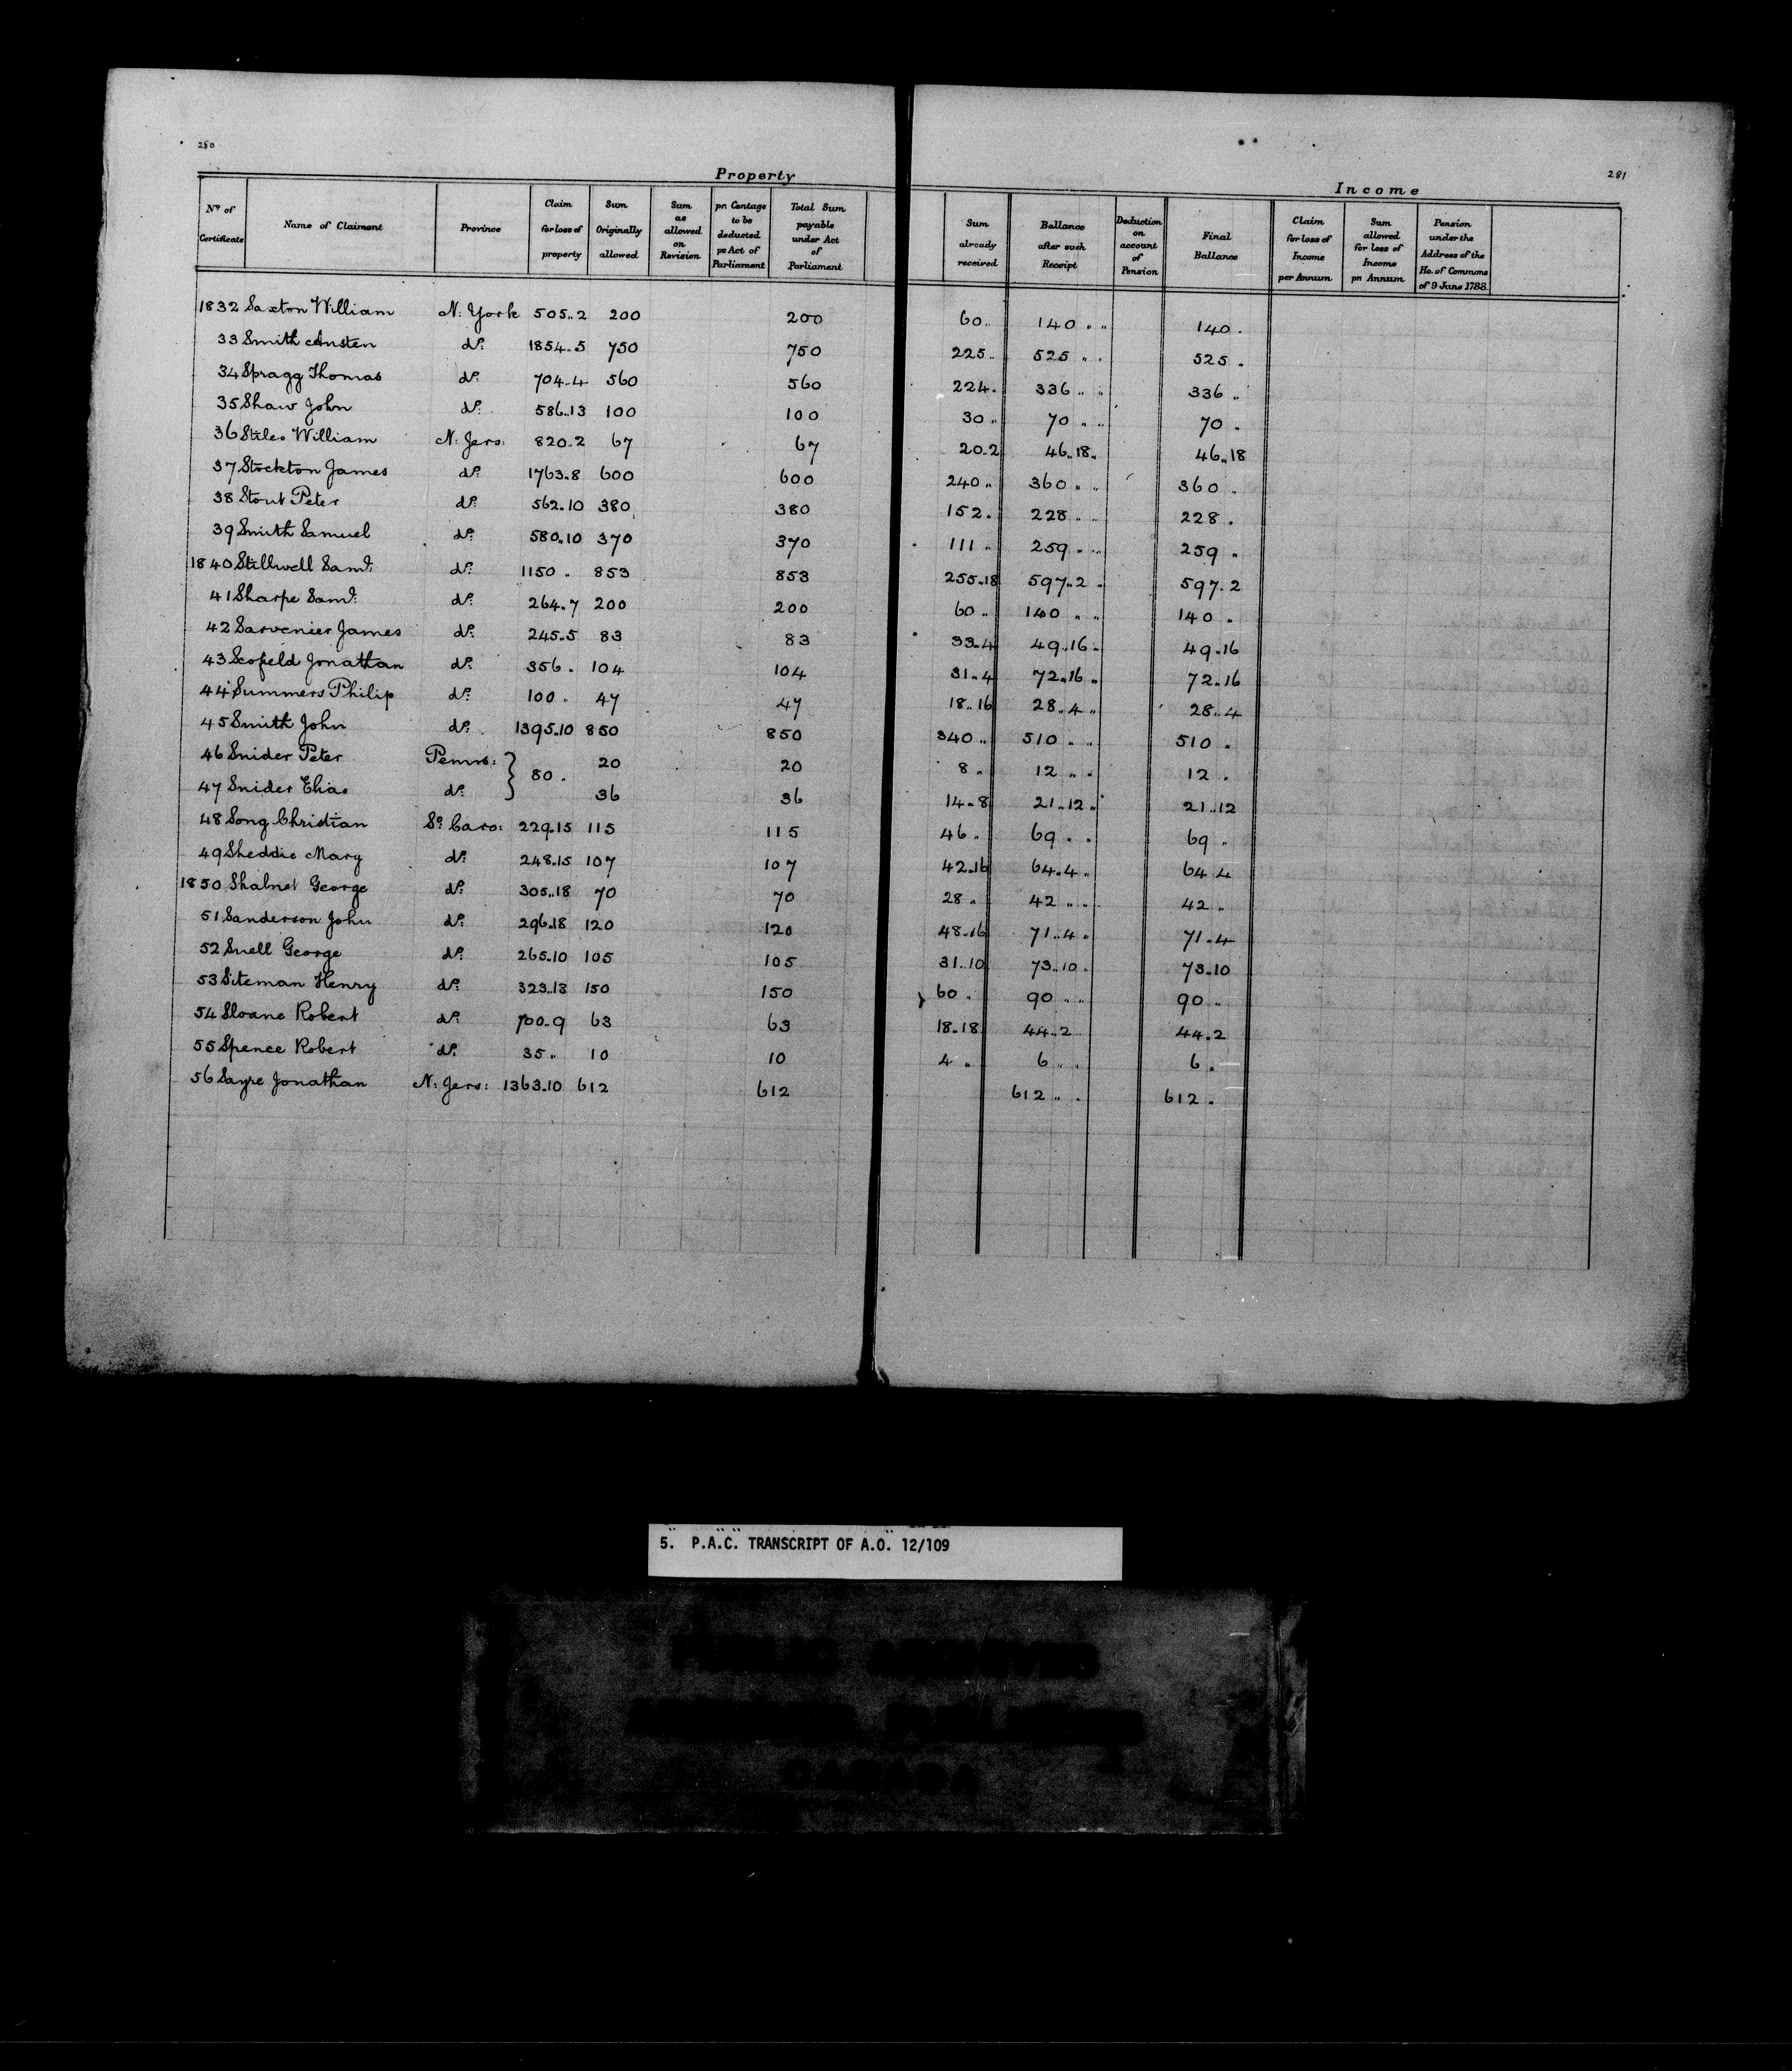 280
281
Property
Income
No of Certificate | Name of Claimant | Province | Claim for loss of property | Sum Originally allowed | Sum as allowed on Revision | pr. Centage to be deducted pr Act of Parliament | Total Sum payable under Act of Parliament | Sum already received | Ballance after such Receipt | Deduction on account of Pension | Final Ballance | Claim for loss of Income per Annum | Sum allowed for loss of Income pr Annum | Pension under the Address of the Ho. of Commons of 9 June 1788.
1832 Saxton William N: York 505..2 200 200 60.. 140 .. .. 140 .
33 Smith Austen do: 1854..5 750 750 225.. 525 .. .. 525 .
34 Spragg Thomas do: 704..4 560 560 224. 336 .. .. 336 ..
35 Shaw John do: 586..13 100 100 30 .. 70 .. .. 70 .
36 Stiles William N: Jers: 820..2 67 67 20..2 46..18.. 46..18
37 Stockton James do: 1763..8 600 600 240 .. 360 .. .. 360 .
38 Stout Peter do: 562..10 380 380 152. 228 .. .. 228 .
39 Smith Samuel do: 580..10 370 370 111 .. 259 .. .. 259 ..
1840 Stillwell Saml: do: 1150 . 853 853 255..18 597..2 . 597..2
41 Sharpe Saml: do: 264..7 200 200 60 .. 140 .. .. 140 .
42 Sarvenier James do: 245..5 83 83 33..4 49..16 .. 49..16
43 Scofield Jonathan do: 356 . 104 104 31..4 72..16 .. 72..16
44 Summers Philip do: 100 . 47 47 18..16 28..4 .. 28..4
45 Smith John do: 1395..10 850 850 340 .. 510 .. .. 510 .
46 Snider Peter Penns: } 80 . 20 20 8 .. 12 .. .. 12 .
47 Snider Elias do: 36 36 14..8 21..12 .. 21..12
48 Song Christian So: Caro: 229..15 115 115 46 .. 69 .. .. 69 ..
49 Sheddie Mary do: 248..15 107 107 42..16 64..4 .. 64 4
1850 Shalnet George do: 305..18 70 70 28 .. 42 .. .. 42 ..
51 Sanderson John do: 296..18 120 120 48..16 71..4 .. 71..4
52 Snell George do: 265..10 105 105 31..10 73..10 . 73..10
53 Siteman Henry do: 323..13 150 150 60 . 90 .. .. 90 ..
54 Sloane Robert do: 700..9 63 63 18..18 44..2 44..2
55 Spence Robert do: 35 .. 10 10 4 .. 6 .. .. 6 .
56 Sayre Jonathan N: Jers: 1363..10 612 612 612 .. . 612 .
5. P.A.C. TRANSCRIPT OF A.O. 12/109